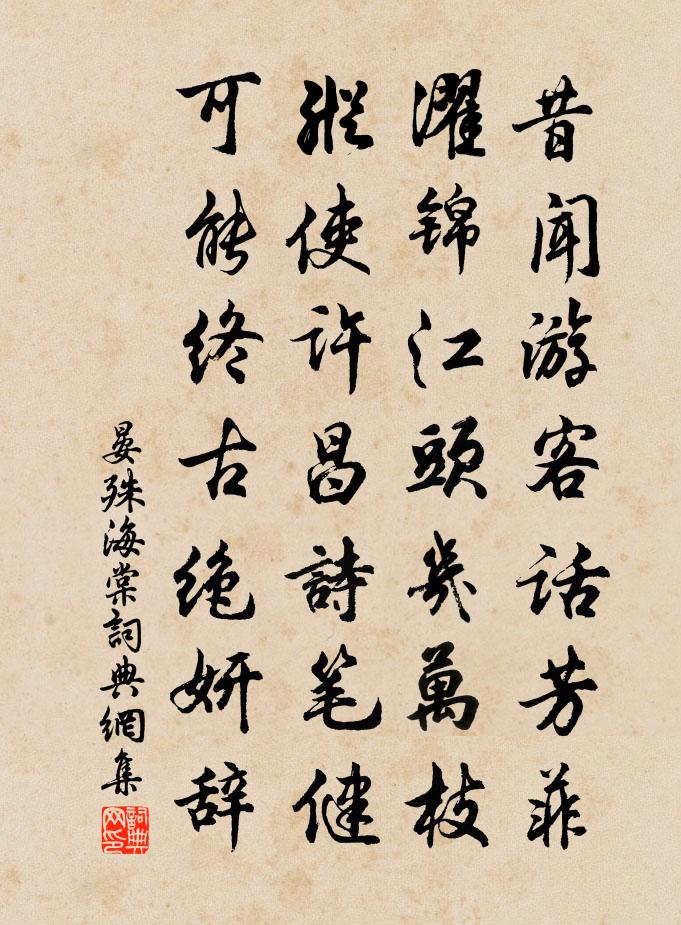 昔闻游客话芳菲
濯锦江頭几萬枝
縱使许昌詩笔健
可能终古绝妍辞
晏殊海棠詞典網集
詞典网印